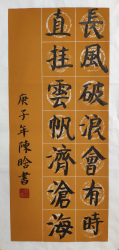 長風破浪會有時
直挂雲帆濟滄海
庚子年陳晗書